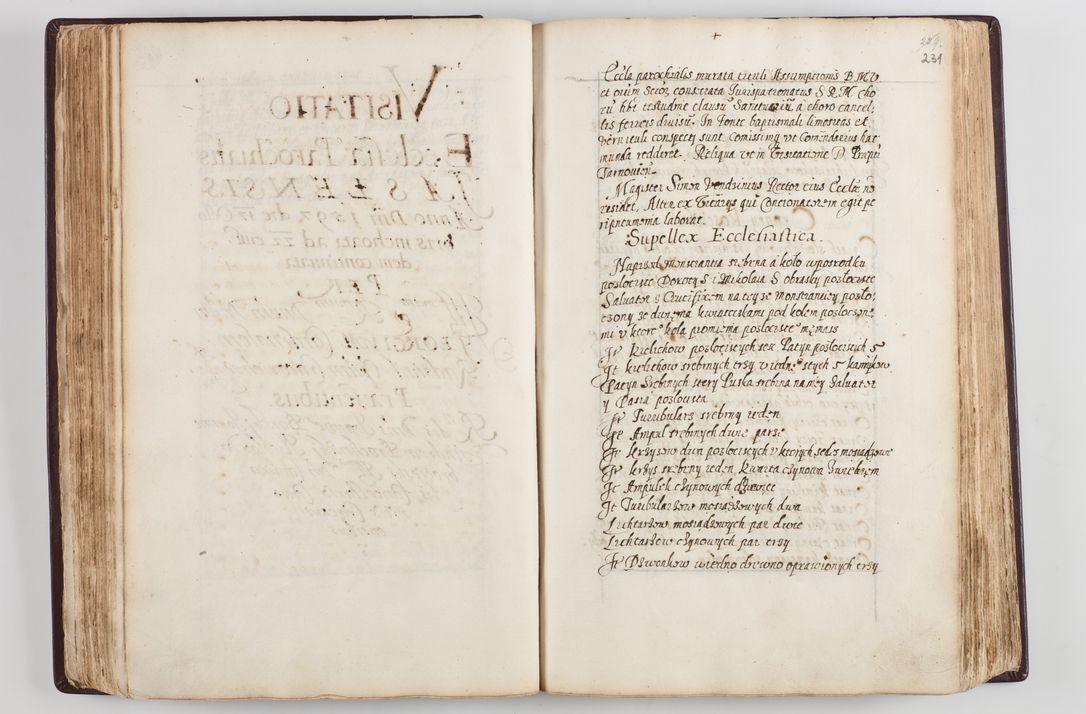 229.
231
Eccła parochialis murata tituli Assumptionis B M V
et oium Sctor, consecrata Jurispatronatus S R M Cho
rū hēt testudine clausū Sanctuariū a choro cancel,
lis ferreis divisū. In fonte baptismali limositas et
vermiculi conspecti sunt. Comissumq vt Comēndarius hæc
munda redderet. Reliqua vt in Visitatione D. Præpti
Tarnovien.
Magister Simon Rector eius Eccłæ nō
residet, Alter ex Vicarijs qui Concionatorem egit pe
ripneumonia laborat.
Supellex Ecclesiastica.
Naprzod monstrantia srebrna a koło wposrodku
pozłociste Doroty S i Mikolaia S obrasky pozłociste
Salvator z Crucifixem na tey ze monstrantiey pozło,
czony ze dwiema kwiateczkami pod kołem pozłoczone,
mi v ktore° koła promienia pozłociste
It Kielichow pozłocistych sesc Patyn pozłocistych 5
It kielichow srebrnych trzy v iedne° stych 5 kamykow
Patyn Srebrnych stery Puska srebrna na niey Salvator
y Passia pozłocista
It Turribularz srebrny ieden
It Ampul srebrnych dwie parze
It krzyzow dwa pozłocistych v ktorych sedes mosiadzowe
It krzyz srebrny ieden, kwarta czynowa
It Ampulek czynowych dzwiece
It Turibularzow mosiądzowych dwa
Lichtarzow mosiadzowych par dwie
Lichtarzow czynowych par trzy
It Dzwonkow wiedno drewno oprawionych trzy